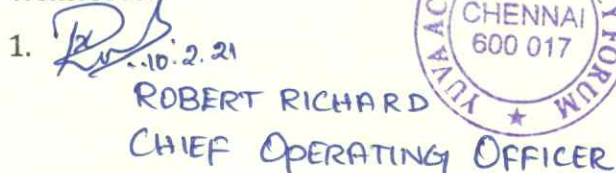 1.
10.2.21
ROBERT RICHARD
CHIEF OPERATING OFFICER
CHENNAI
600 017
YUVA AC
Y FORUM